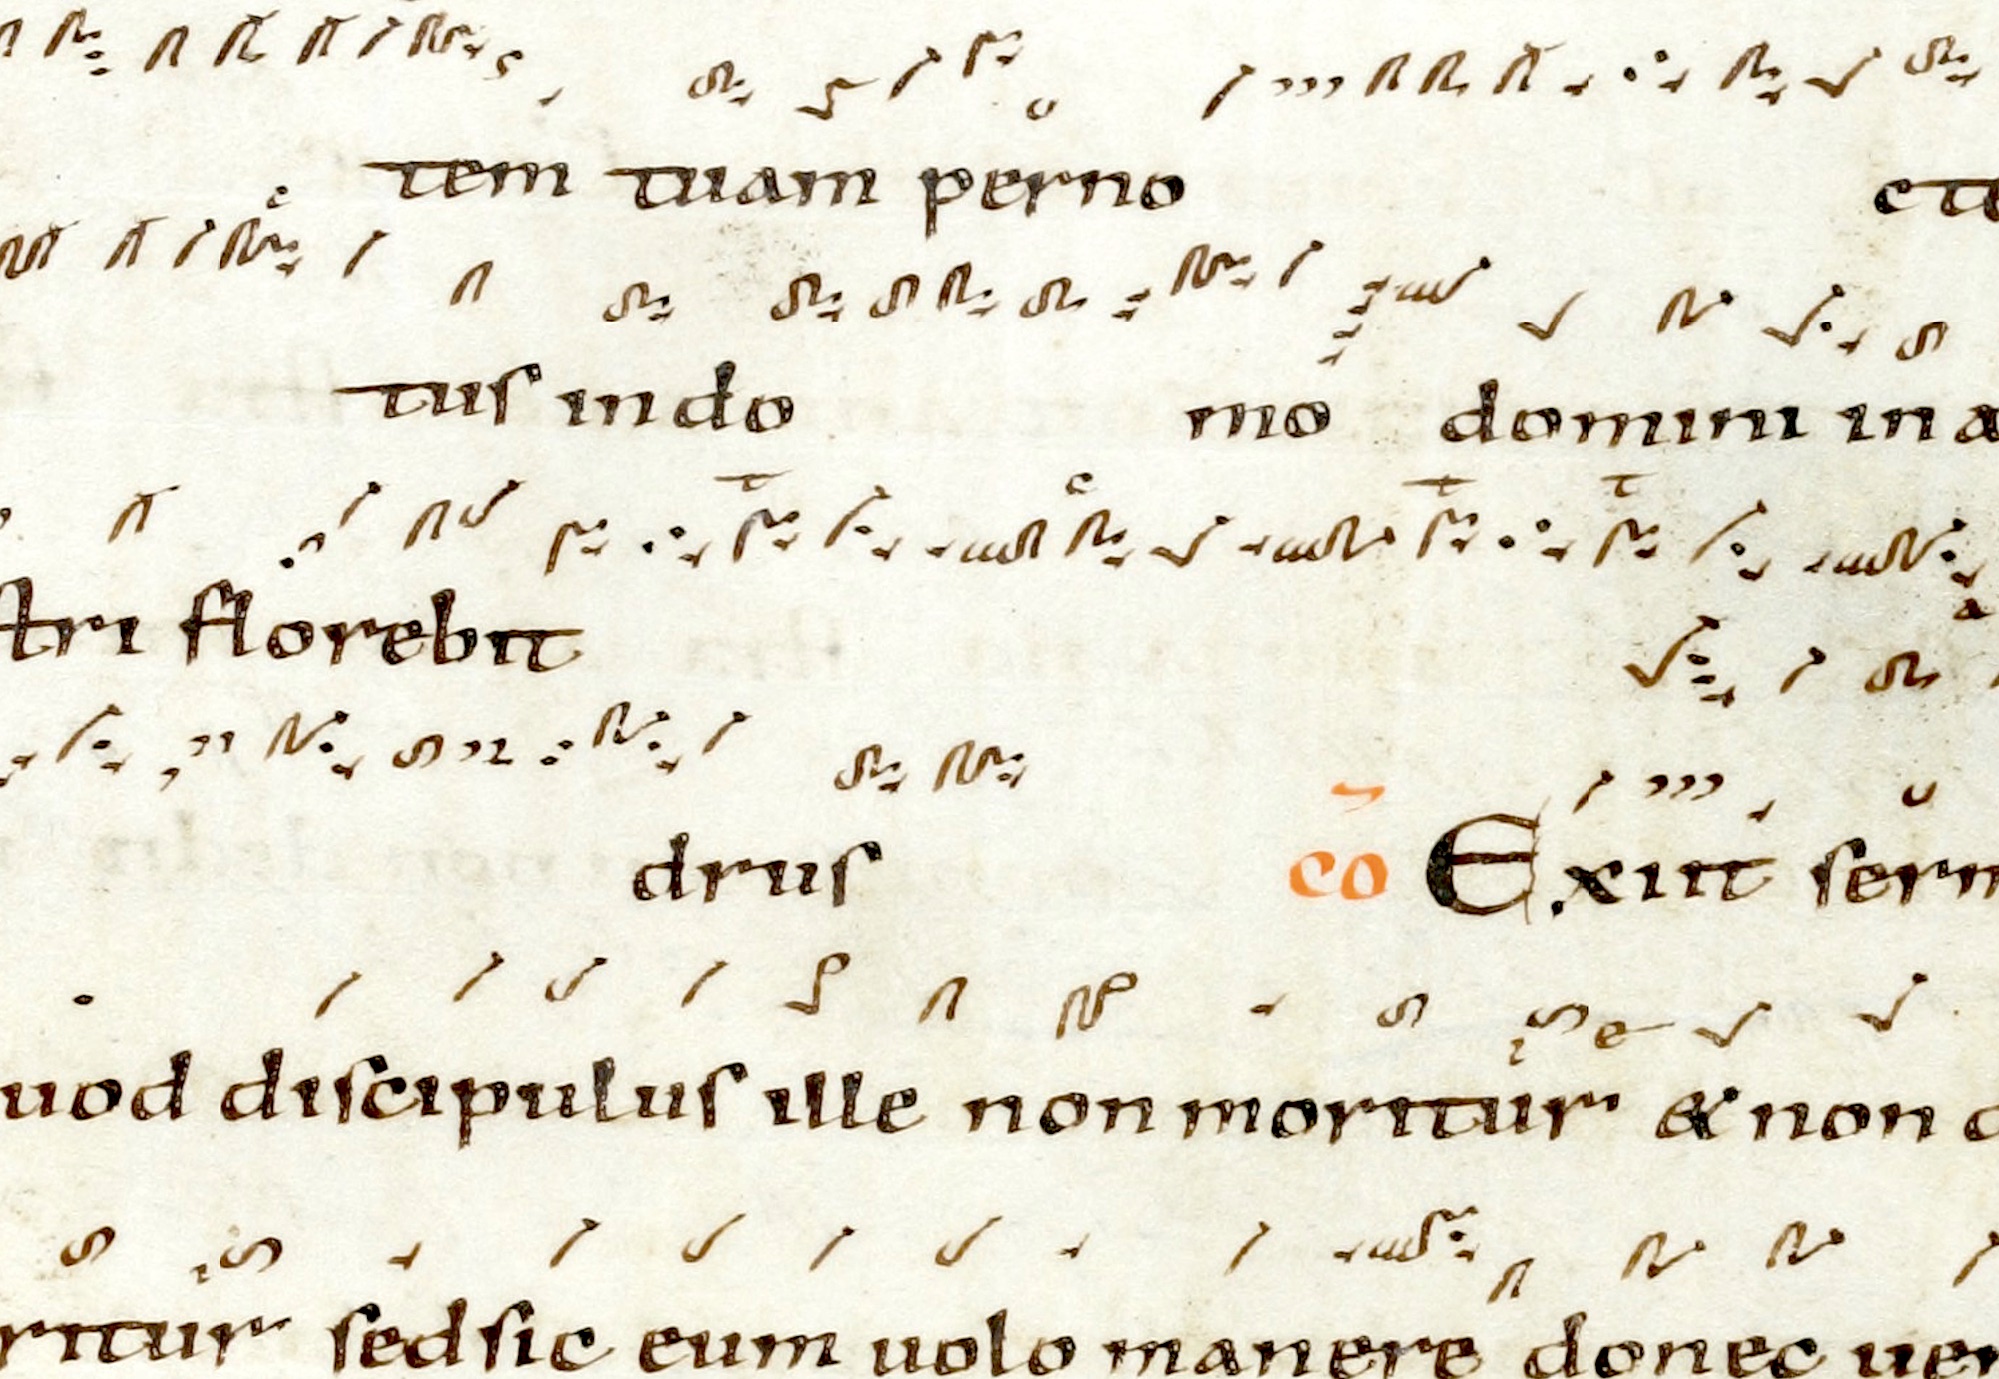 tem tuam perno ctē
tuſ indo mo domini in a
ſtri florebit
druſ co Exiit ſerm
uod diſcipuluſ ille non moritur & non d
ritur ſed ſic eum uolo manere donec uen